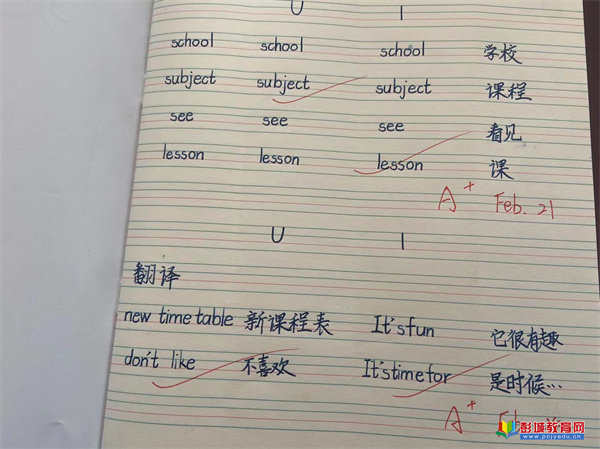 U 1
school school school 学校
subject subject subject 课程
see see see 看见
lesson lesson lesson 课
A+ Feb. 21
U 1
翻译
new time table 新课程表 It's fun 它很有趣
don't like 不喜欢 It's time for 是时候…
A+
彭城教育网
www.pcjyedu.cn